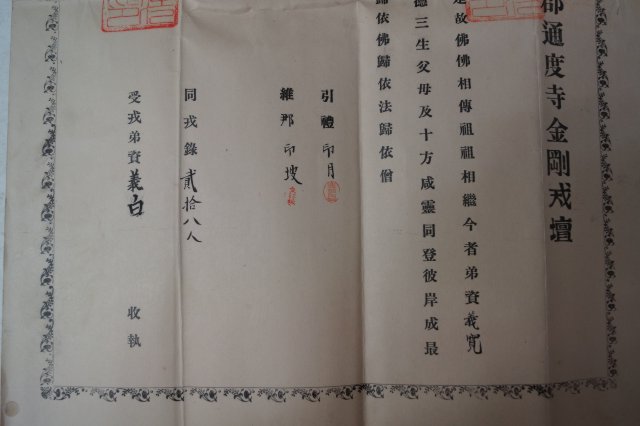 郡通度寺金剛戒壇
是故佛佛相傳祖祖相繼今者弟資義寬
德三生父母及十方咸靈同登彼岸成最
歸依佛歸依法歸依僧
引禮印月
維那印
同戒錄貳拾八人
受戒弟資義白 收執